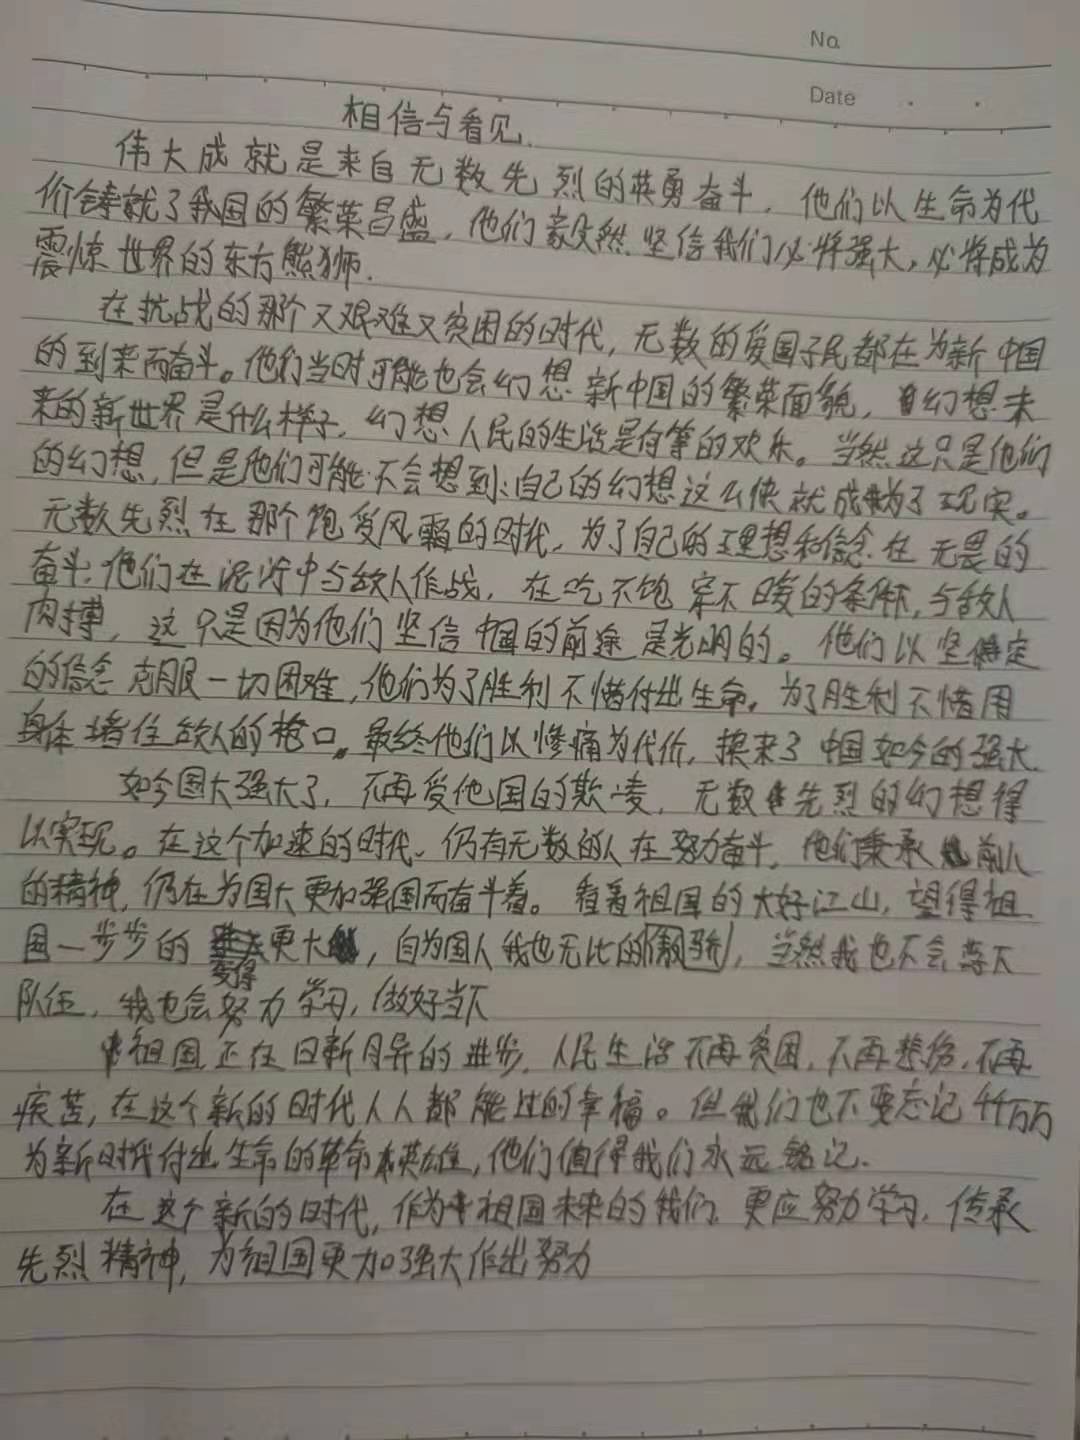 No.
Date
相信与看见.
伟大成就是来自无数先烈的英勇奋斗，他们以生命为代
价铸就了我国的繁荣昌盛，他们毅然坚信我们必将强大，必将成为
震惊世界的东方熊狮.
在抗战的那个又艰难又贫困的时代，无数的爱国子民都在为新中国
的到来而奋斗。他们当时可能也会幻想新中国的繁荣面貌，幻想未
来的新世界是什么样子，幻想人民的生活是何等的欢乐。当然这只是他们
的幻想，但是他们可能不会想到：自己的幻想这么快就成为了现实。
无数先烈在那个饱受风霜的时代，为了自己的理想和信念在无畏的
奋斗，他们在泥泞中与敌人作战，在吃不饱穿不暖的条件下，与敌人
肉搏，这只是因为他们坚信中国的前途是光明的。他们以坚定
的信念克服一切困难，他们为了胜利不惜付出生命，为了胜利不惜用
身体堵住敌人的枪口。最终他们以惨痛为代价，换来了中国如今的强大.
如今国大强大了，不再受他国的欺凌，无数先烈的幻想得
以实现。在这个加速的时代、仍有无数的人在努力奋斗，他们秉承前人
的精神，仍在为国大更加强国而奋斗着。看着祖国的大好江山，望得祖
国一步步的变得更大，自为国人我也无比的骄，当然我也不会落下
队伍，我也会努力学习，做好当下
祖国正在日新月异的进步，人民生活不再贫困，不再悲伤，不再
疾苦，在这个新的时代人人都能过的幸福。但我们也不要忘记千万万
为新时代付出生命的革命英雄，他们值得我们永远铭记.
在这个新的时代，作为祖国未来的我们，更应努力学习，传承
先烈精神，为祖国更加强大作出努力